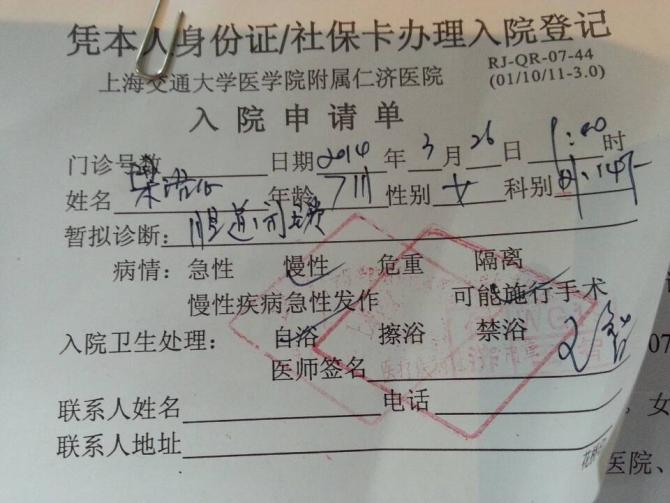 凭本人身份证/社保卡办理入院登记
上海交通大学医学院附属仁济医院
RJ-QR-07-44
(01/10/11-3.0)
入院申请单
门诊号数 日期2014年3月26日1:00时
姓名 年龄 性别女 科别
暂拟诊断:
病情:急性 慢性 危重 隔离
慢性疾病急性发作 可能施行手术
入院卫生处理: 自浴 擦浴 禁浴
医师签名
07
联系人姓名 电话
,女
联系人地址
医院、